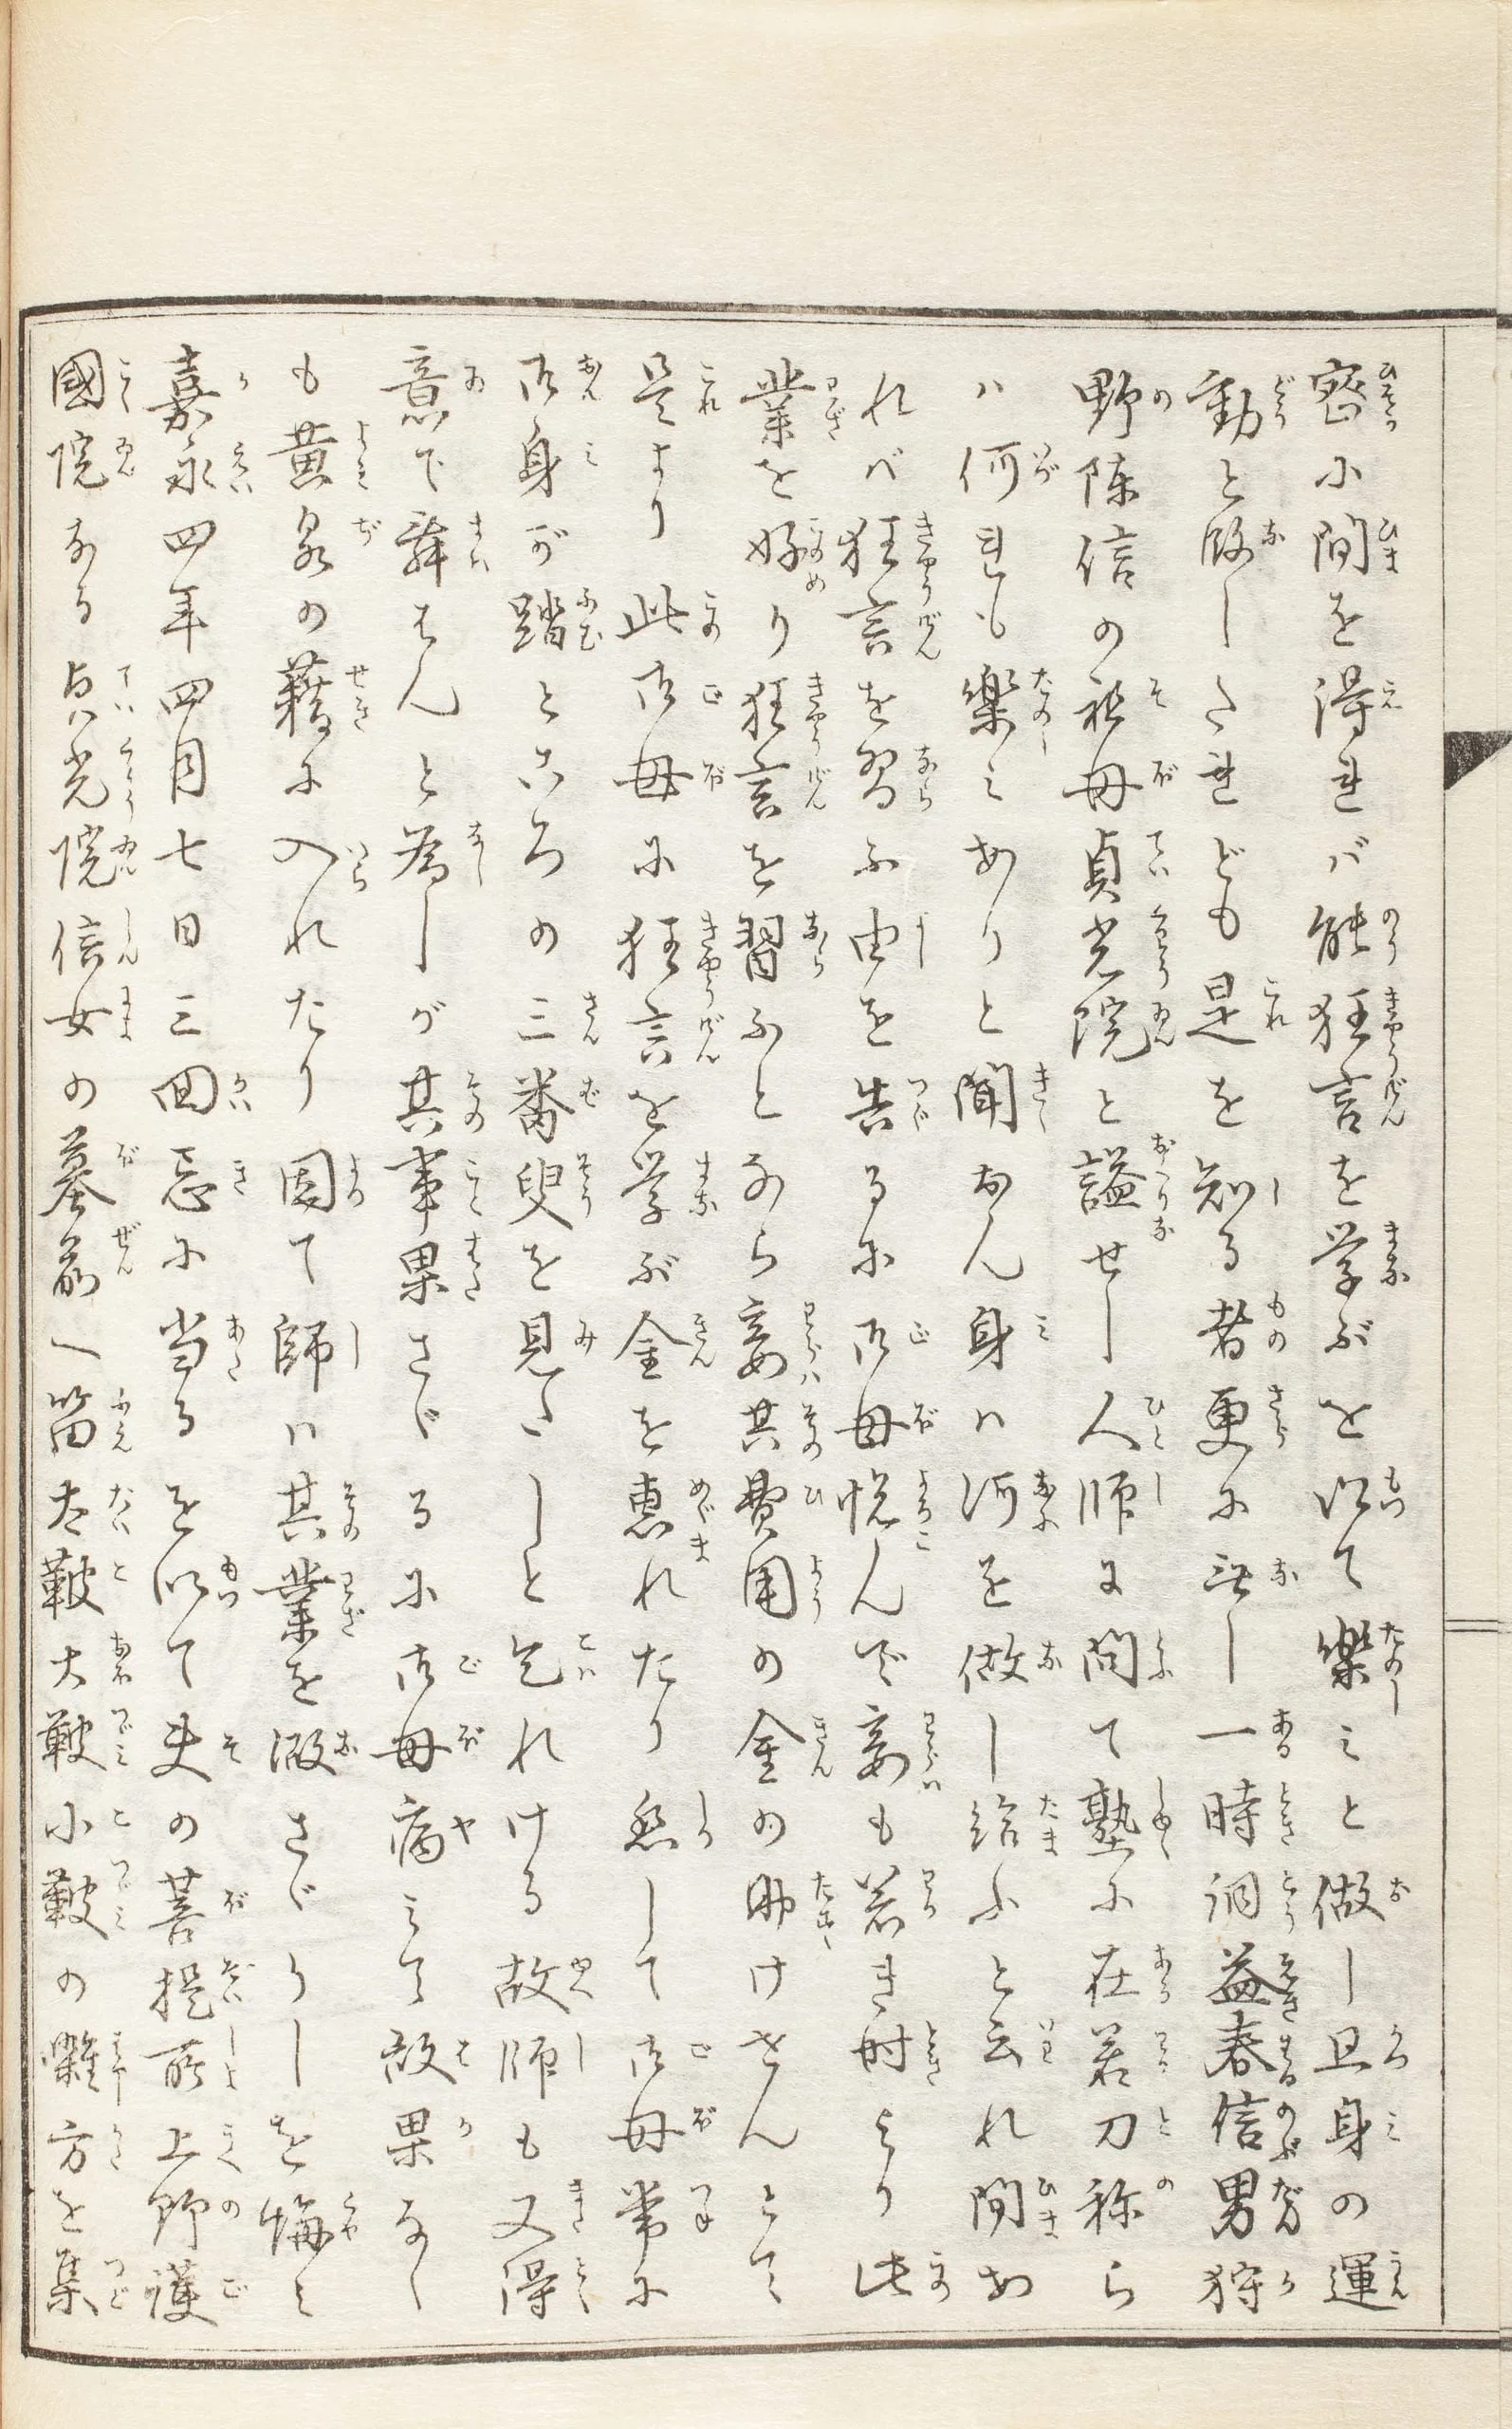 密に間を得れバ能狂言を学ぶを以て楽ミと做し且身の運
動と做しゝれども是を知る者更に無し一時洞益春信男狩
野陳信の祖母貞光院と謚せし人師に問て塾に在若刀祢ら
ハ何れも楽ミありと聞なん身ハ何を做し給ふと云れ間お
れバ狂言を習ふ由を告るに御母悦んで妾も若き時より此
業を好り狂言を習ふとなら妾其費用の金の助けせんとて
是より此御母に狂言を学ぶ金を恵れたり然して御母常に
御身が踏ところの三番叟を見たしと乞れける故師も又得
意で舞はんと為しが其事果さゞるに御母病ミて故果なく
も黄泉の籍に入れたり因て師ハ其業を做さゞりしを悔ミ
嘉永四年四月七日三回忌に当るを以て夫の菩提所上野護
國院なる貞光院信女の墓前へ笛太鞁大鞁小鞁の囃方を集